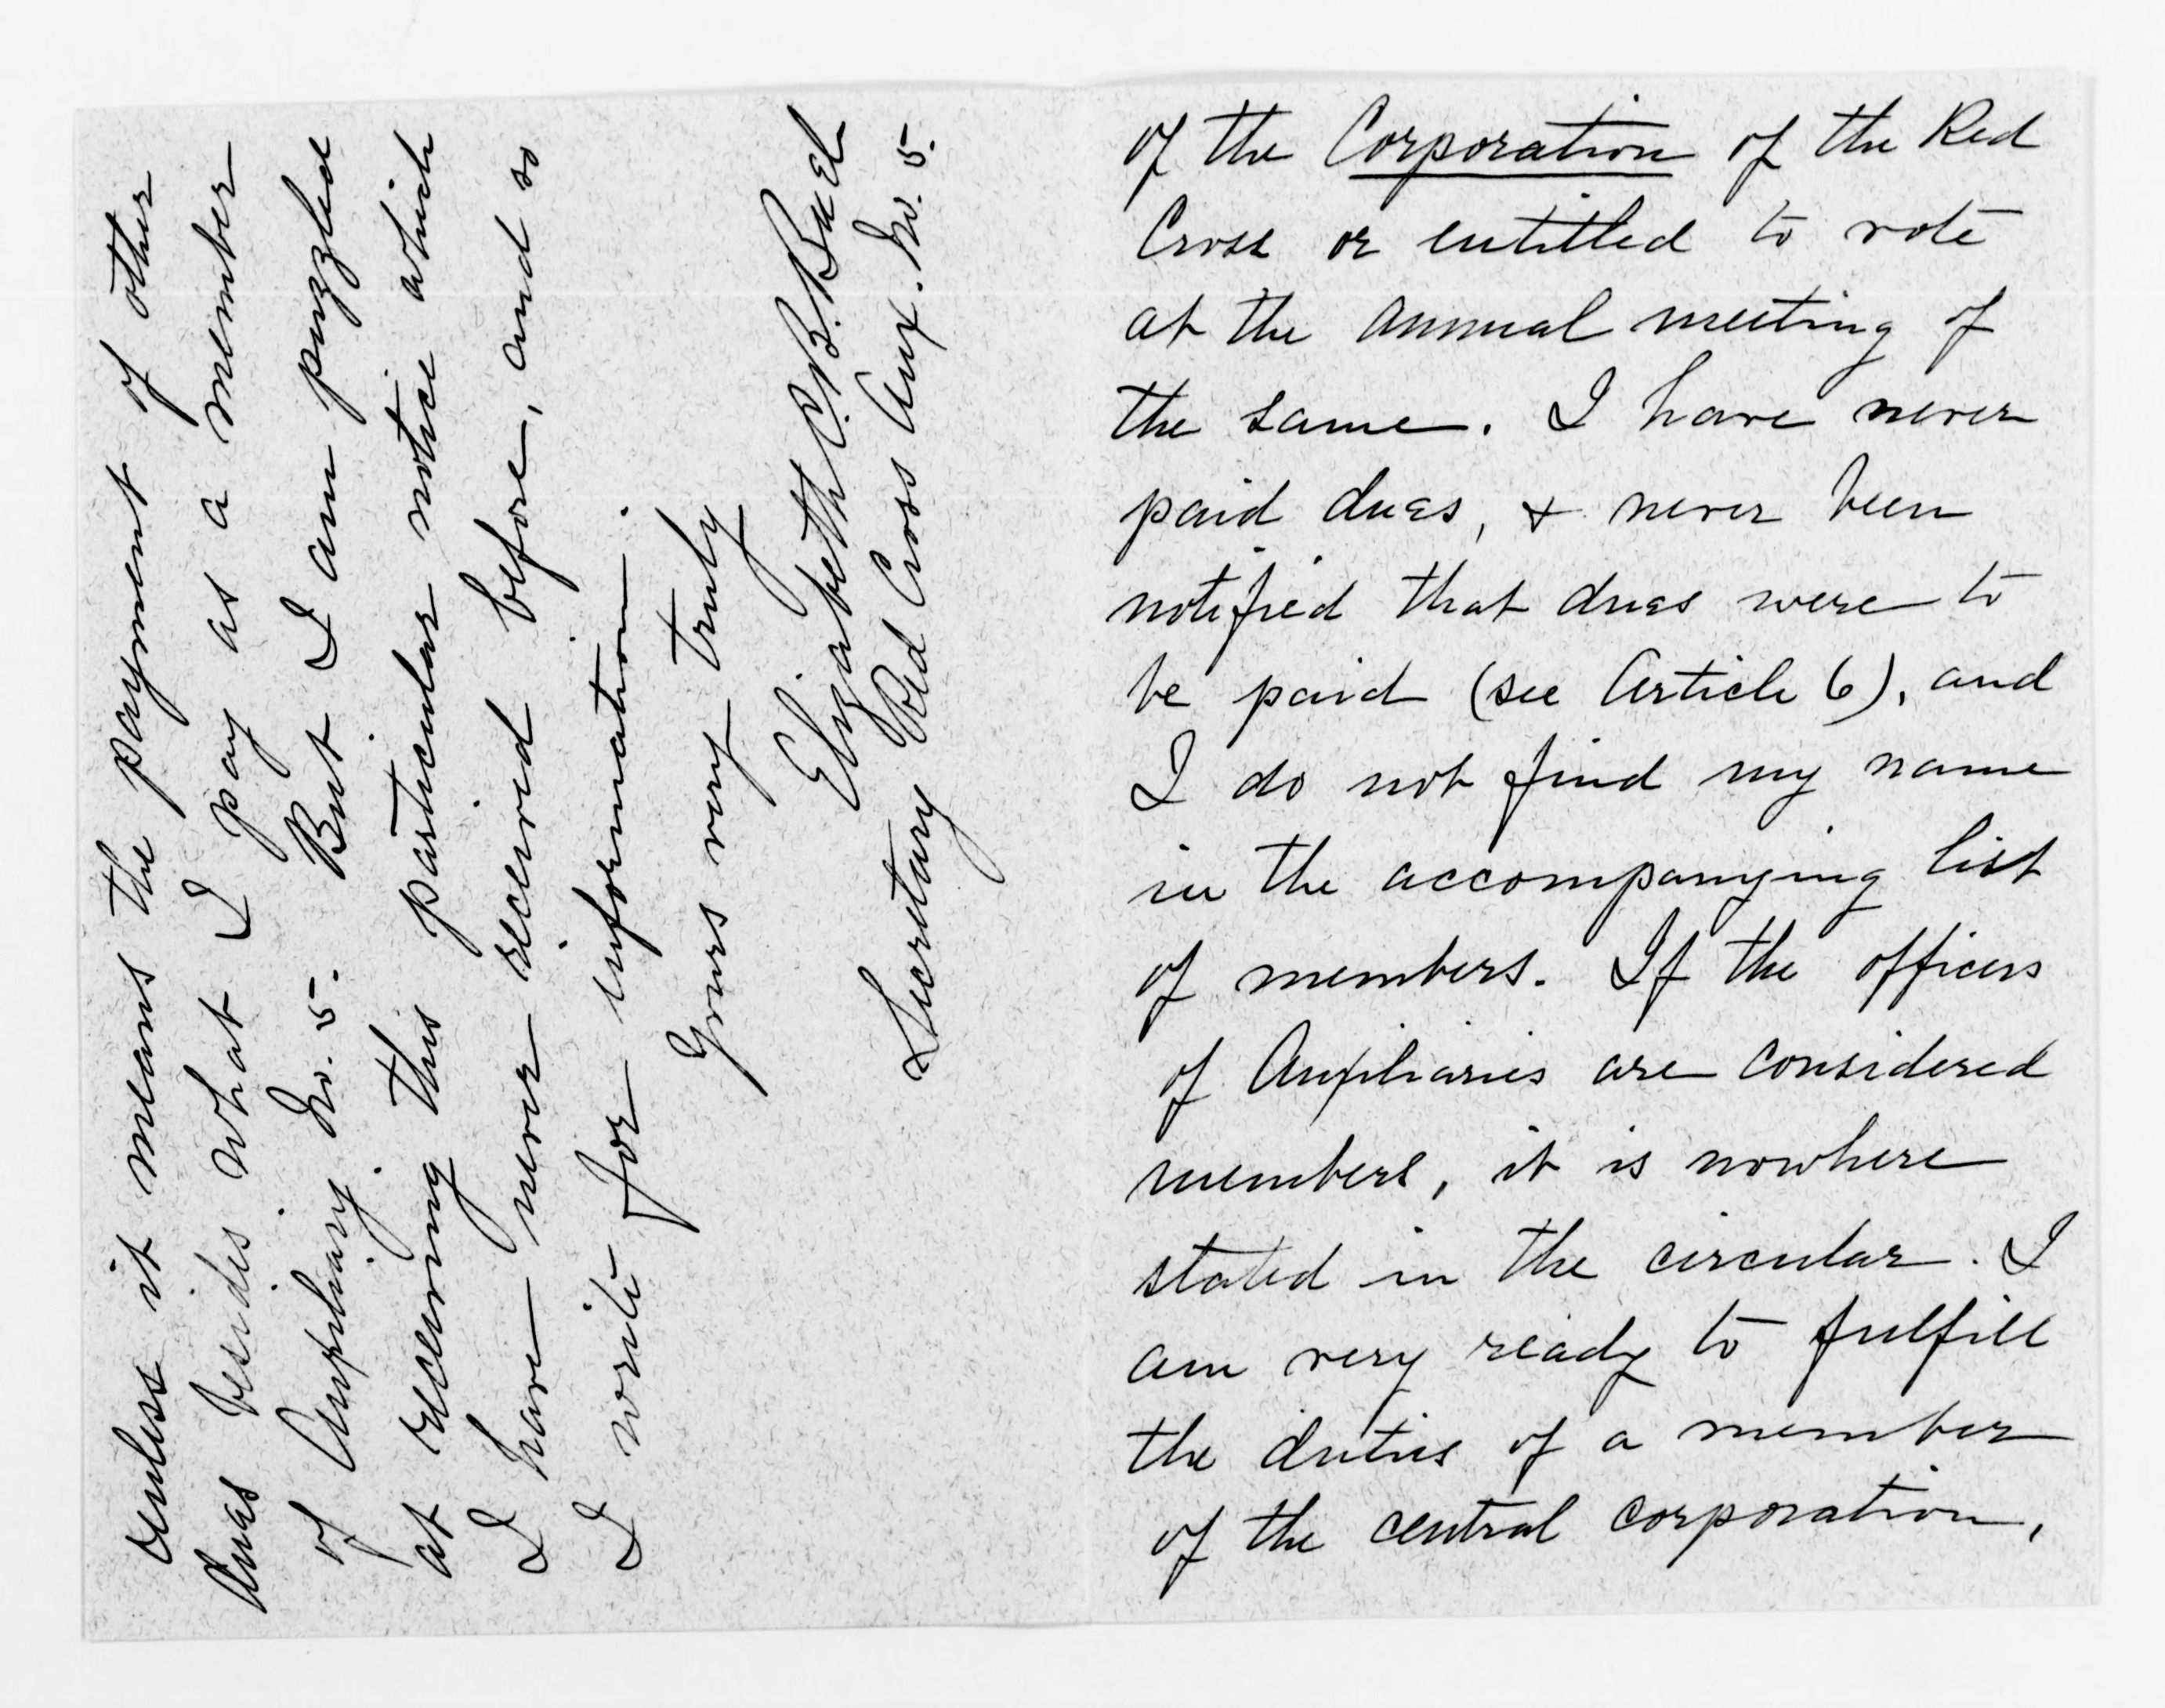 of the Corporation of the Red
Cross or entitled to vote
at the annual meeting of
the same. I have never
paid dues, & never been
notified that dues were to
be paid (see Article 6), and
I do not find my name
in the accompanying list
of members. If the officers
of Auxiliaries are considered
members, it is nowhere
stated in the circular. I
am very ready to fulfill
the duties of a member
of the central corporation,
unless it means the payment of other
dues besides what I pay as a member
of Auxiliary No. 5. But I am puzzled
at receiving this particular notice which
I have never received before, and so
I write for information.
Yours very truly
Elizabeth C. B. Buel
Secretary Red Cross Aux. No. 5.